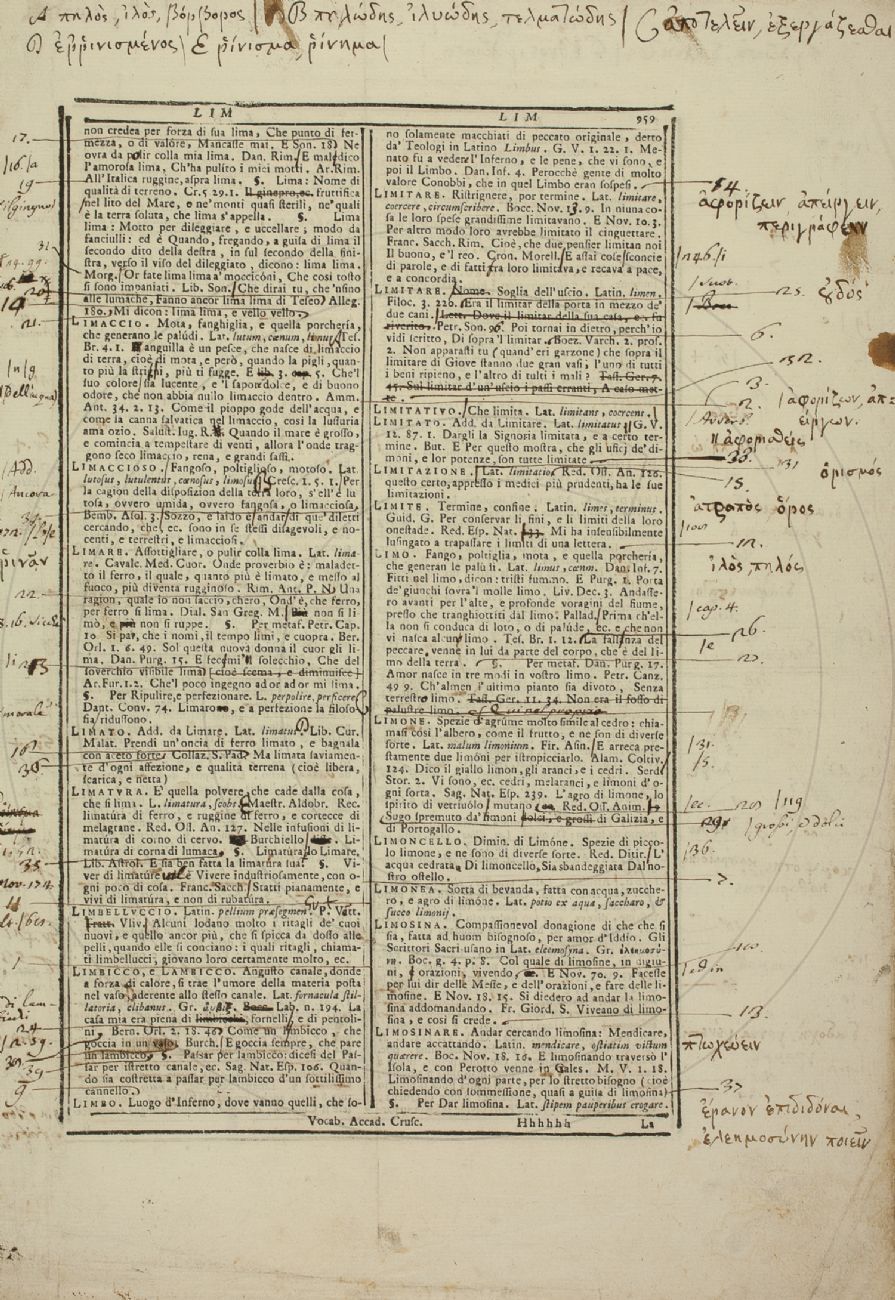 A πηλὸς, ἰλὸς, βόρβορος B πηλώδης, ἰλυώδης, τελματώδης C ἀποτελεῖν, ἐξεργάζεσθαι
D ἐῤῥινισμένος E ῥίνισμα, ῥίνημα
LIM LIM 959
non credea per forza di sua lima, Che punto di fer-
mezza, o di valore, Mancasse mai. E Son. 18. Ne
ovra da polir colla mia lima. Dan. Rim. E maledico
l'amorosa lima, Ch'ha pulito i miei motti. Ar. Rim.
All'Italica ruggine, aspra lima. §. Lima: Nome di
qualità di terreno. Cr. 5. 29. 1. Il ginepro, ec. fruttifica
nel lito del Mare, e ne' monti quasi sterili, ne' quali
è la terra soluta, che lima s'appella. §. Lima
lima: Motto per dileggiare, e uccellare; modo da
fanciulli: ed è Quando, fregando, a guisa di lima il
secondo dito della destra, in sul secondo della sini-
stra, verso il viso del dileggiato, dicono: lima lima.
Morg. Or fate lima lima a' mocciconi, Che così tosto
si sono impaniati. Lib. Son. Che dirai tu, che 'nsino
alle lumache, Fanno ancor lima lima di Teseo? Alleg.
180. Mi dicon: lima lima, e vello vello.
LIMACCIO. Mota, fanghiglia, e quella porcheria,
che generano le palúdi. Lat. lutum, cœnum, limus. Tes.
Br. 4. 1. Anguilla è un pesce, che nasce di limaccio
di terra, cioè di mota, e però, quando la pigli, quan-
to più la strigni, più ti fugge. E lib. 3. cap. 5. Che'l
suo colore sia lucente, e 'l sapore dolce, e di buono
odore, che non abbia nullo limaccio dentro. Amm.
Ant. 34. 2. 13. Come il pioppo gode dell'acqua, e
come la canna salvatica nel limaccio, così la lussuria
ama ozio. Salust. Iug. R. Quando il mare è grosso,
e comincia a tempestare di venti, allora l'onde trag-
gono seco limaccio, rena, e grandi sassi.
LIMACCIOSO. Fangoso, poltiglioso, motoso. Lat.
lutosus, lutulentus, cœnosus, limosus. Cresc. 1. 5. 1. Per
la cagion della disposizion della terra loro, s'ell'è lu-
tosa, ovvero umida, ovvero fangosa, o limacciosa.
Bemb. Asol. 3. Sozzo, e laido è andar di que' diletti
cercando, che, ec. sono in se stessi disagevoli, e no-
centi, e terrestri, e limacciosi.
LIMARE. Assottigliare, o pulir colla lima. Lat. lima-
re. Cavalc. Med. Cuor. Onde proverbio è: maladet-
to il ferro, il quale, quanto più è limato, e messo al
fuoco, più diventa rugginoso. Rim. Ant. P. N. Una
ragion, quale io non saccio, chero, Ond'è, che ferro,
per ferro si lima. Dial. San Greg. M. Più non si li-
mò, e più non si ruppe. §. Per metaf. Petr. Cap.
10. Sì par, che i nomi, il tempo limi, e cuopra. Ber.
Orl. 1. 6. 49. Sol questa nuova donna il cuor gli li-
ma. Dan. Purg. 15. E fecemi 'l solecchio, Che del
soverchio visibile lima (cioè scema, e diminuisce)
Ar. Fur. 12. Che'l poco ingegno ad or ad or mi lima.
§. Per Ripulire, e perfezionare. L. perpolire, perficere.
Dant. Conv. 74. Limarono, e a perfezione la filoso-
fia ridussono.
LIMATO. Add. da Limare. Lat. limatus. Lib. Cur.
Malat. Prendi un'oncia di ferro limato, e bagnala
con aceto forte. Collaz. S. Pad. Ma limata saviamen-
te d'ogni affezione, e qualità terrena (cioè libera,
scarica, e netta)
LIMATURA. E' quella polvere, che cade dalla cosa,
che si lima. L. limatura, scobs. Maestr. Aldobr. Rec.
limatúra di ferro, e ruggine di ferro, e cortecce di
melagrane. Red. Oss. An. 127. Nelle infusioni di li-
matúra di corno di cervo. Burchiello. Li-
matúra di corna di lumaca. §. Limatura, lo Limare.
Lib. Astrol. E sia ben fatta la limatura sua. §. Vi-
ver di limature vale Vivere industriosamente, con o-
gni poco di cosa. Franc. Sacch. Statti pianamente, e
vivi di limatura, e non di rubatura.
LIMBELLUCCIO. Latin. pellium præsegmen. P. Vett.
Vliv. Alcuni lodano molto i ritagli de' cuoi
nuovi, e quello ancor più, che si spicca da dosso alle
pelli, quando elle si conciano: i quali ritagli, chiama-
ti limbellucci, giovano loro certamente molto, ec.
LIMBICCO, e LAMBICCO. Angusto canale, donde
a forza di calore, si trae l'umore della materia posta
nel vaso, aderente allo stesso canale. Lat. fornacula stil-
latoria, clibanus. Gr. Bocc. Lab. n. 194. La
casa mia era piena di limbicchi, fornelli, e di pentoli-
ni. Bern. Orl. 2. 18. 46. Come un limbicco, che
goccia in un vaso. Burch. E goccia sempre, che pare
un limbicco. §. Passar per limbicco: dicesi del Pas-
sar per istretto canale, ec. Sag. Nat. Esp. 106. Quan-
do sia costretta a passar per lambicco d'un sottilissimo
cannello.
LIMBO. Luogo d'Inferno, dove vanno quelli, che so-
no solamente macchiati di peccato originale, detto
da' Teologi in Latino Limbus. G. V. 1. 22. 1. Me-
nato fu a vedere l'Inferno, e le pene, che vi sono, e
poi il Limbo. Dan. Inf. 4. Perocchè gente di molto
valore Conobbi, che in quel Limbo eran sospesi.
LIMITARE. Ristrignere, por termine. Lat. limitare,
coercere, circumscribere. Bocc. Nov. 13. 9. In niuna co-
sa le loro spese grandissime limitavano. E Nov. 10. 3.
Per altro modo loro avrebbe limitato il cinguettare.
Franc. Sacch. Rim. Cioè, che due pensier limitan noi
Il buono, e 'l reo. Cron. Morell. E assai cose sconcie
di parole, e di fatti fra loro limitava, e recava a pace,
e a concordia.
LIMITARE. Nome. Soglia dell'uscio. Latin. limen.
Filoc. 3. 226. Era il limitar della porta in mezzo de'
due cani. Lett. Dove il limitar della sua casa, e, fu
riverito. Petr. Son. 96. Poi tornai in dietro, perch'io
vidi scritto, Di sopra 'l limitar. Boez. Varch. 2. pros.
2. Non apparasti tu (quand'eri garzone) che sopra il
limitare di Giove stanno due gran vasi, l'uno di tutti
i beni ripieno, e l'altro di tutti i mali? Tass. Ger. 7.
45. Sul limitar d'un'uscio i passi erranti, A caso met-
te.
LIMITATIVO. Che limita. Lat. limitans, coercens.
LIMITATO. Add. da Limitare. Lat. limitatus. G. V.
12. 87. 1. Dargli la Signoria limitata, e a certo ter-
mine. But. E Per questo mostra, che gli uficj de' di-
moni, e lor potenze, son tutte limitate.
LIMITAZIONE. Lat. limitatio. Red. Oss. An. 126.
questo certo, appresso i medici più prudenti, ha le sue
limitazioni.
LIMITE. Termine, confine. Latin. limes, terminus.
Guid. G. Per conservar li fini, e li limiti della loro
onestade. Red. Esp. Nat. Mi ha insensibilmente
lusingato a trapassare i limiti di una lettera.
LIMO. Fango, poltiglia, mota, e quella porcheria,
che generan le palùli. Lat. limus, cœnum. Dan. Inf. 7.
Fitti nel limo, dicon: tristi fummo. E Purg. 1. Porta
de' giunchi sovra'l molle limo. Liv. Dec. 3. Andasse-
ro avanti per l'alte, e profonde voragini del fiume,
presso che tranghiottiti dal limo. Pallad. Prima ch'el-
la non si conduca di loto, o di palúde, ec. e che non
vi nasca alcun limo. Tes. Br. 1. 12. La fallenza del
peccare, venne in lui da parte del corpo, che è del li-
mo della terra. §. Per metaf. Dan. Purg. 17.
Amor nasce in tre modi in vostro limo. Petr. Canz.
49. 9. Ch'almen l'ultimo pianto sia divoto, Senza
terrestro limo. Tass. Ger. 11. 34. Non era il fosso di
palustre limo.
LIMONE. Spezie d'agrume molto simile al cedro: chia-
masi così l'albero, come il frutto, e ne son di diverse
sorte. Lat. malum limonium. Fir. Asin. E arreca pre-
stamente due limóni per istropicciarlo. Alam. Coltiv.
124. Dico il giallo limon, gli aranci, e i cedri. Serd.
Stor. 2. Vi sono, ec. cedri, melaranci, e limoni d'o-
gni sorta. Sag. Nat. Esp. 239. L'agro di limone, lo
spirito di vetriuólo, mutano Red. Oss. Anim.
Sugo spremuto da' limoni dolci, e grossi di Galizia, e
di Portogallo.
LIMONCELLO. Dimin. di Limóne. Spezie di picco-
lo limone, e ne sono di diverse sorte. Red. Ditir. L'
acqua cedrata, Di limoncello, Sia sbandeggiata Dal no-
stro ostello.
LIMONEA. Sorta di bevanda, fatta con acqua, zucche-
ro, e agro di limóne. Lat. potio ex aqua, saccharo, &
succo limonij.
LIMOSINA. Compassionevol donagione di che che si
sia, fatta ad huom bisognoso, per amor d'Iddio. Gli
Scrittori Sacri usano in Lat. eleemosyna. Gr. ἐλεημοσύ-
νη. Boc. g. 4. p. 8. Col quale di limosine, in digiu-
ni, e orazioni, vivendo, ec. E Nov. 70. 9. Facesse
per lui dir delle Messe, e dell'orazioni, e fare delle li-
mosine. E Nov. 18. 15. Si diedero ad andar la limo-
sina addomandando. Fr. Giord. S. Viveano di limo-
sina, e così si crede.
LIMOSINARE. Andar cercando limosina: Mendicare,
andare accattando. Latin. mendicare, ostiatim victum
quærere. Boc. Nov. 18. 16. E limosinando traversò l'
Isola, e con Perotto venne in Gales. M. V. 1. 18.
Limosinando d'ogni parte, per lo stretto bisogno (cioè
chiedendo con sommessione, quasi a guisa di limosina)
§. Per Dar limosina. Lat. stipem pauperibus erogare.
Vocab. Accad. Crusc. Hhhhhh La
17.
19
21.
22.
35
39
9
54
ἀφορίζειν ἀπείργειν,
περιγράφειν
146.
25.
ἐδὸς
6.
152.
3.
2.
ἀφορίζων, ἀπ-
είργων.
ἀφορισθείς
38.
31
ὁρισμός
15.
ὅρος
12.
ἰλὸς, πηλός
cap. 4.
26.
131.
15.
136.
7.
13.
πτωχεύειν
37
ἔρανον ἐπιδιδόναι,
ἐλεημοσύνην ποιεῖν